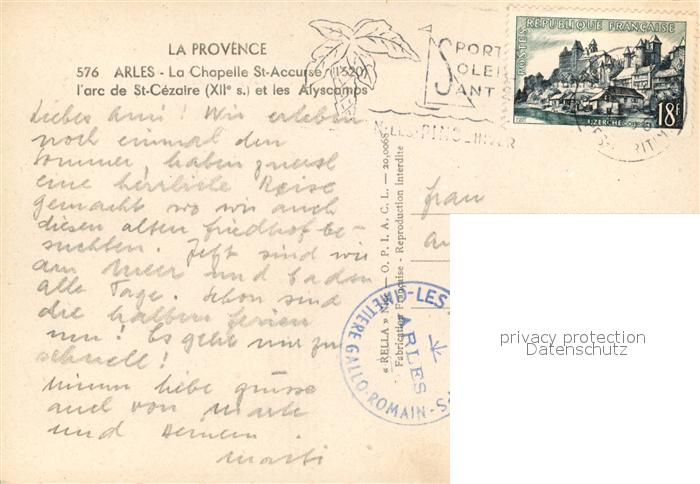 LA PROVENCE
576 ARLES - La Chapelle St-Accurse (1520)
l'arc de St-Cézaire (XIIe s.) et les Alyscamps
Wir erleben
noch einmal den
Sommer, haben zuerst
eine herrliche Reise
gemacht wo wir auch
diesen alten Friedhof be-
suchten. Jetzt sind wir
am Meer und baden
alle Tage. Schon sind
die halben Ferien
um! Es geht nur zu
schnell!
Nimm liebe Grüsse
auch von
und
SPORT
SOLEIL
SANT
RÉPUBLIQUE FRANÇAISE
POSTES
UZERCHE
18F
« RELLA » O. P. I. A. C. L. — 20,0068
Fabrication Française - Reproduction interdite
Frau
CIMETIERE GALLO-ROMAIN
ARLES
privacy protection
Datenschutz